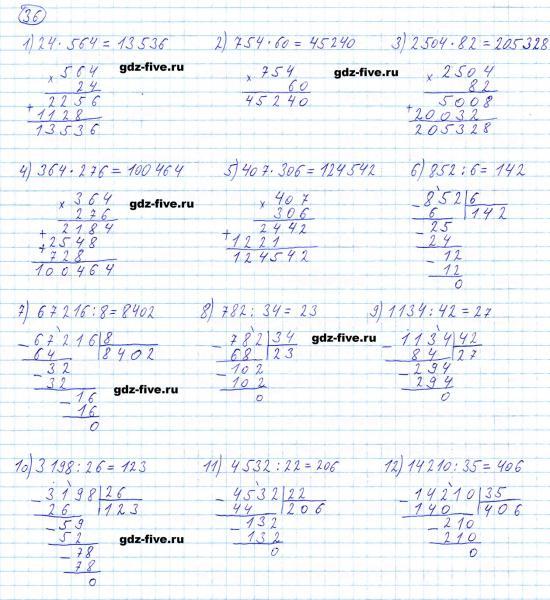 36
1) 24 · 564 = 13536 2) 754 · 60 = 45240 3) 2504 · 82 = 205328
gdz-five.ru
× 564 × 754 × 2504
24 60 82
+ 2256 45240 + 5008
1128 20032
13536 205328
4) 364 · 276 = 100464 5) 407 · 306 = 124542 6) 852 : 6 = 142
× 364 gdz-five.ru × 407 - 852 | 6
276 306 6 142
+ 2184 + 2442 - 25
+ 2548 1221 24
728 124542 - 12
100464 12
0
7) 67216 : 8 = 8402 8) 782 : 34 = 23 9) 1134 : 42 = 27
- 67216 | 8 - 782 | 34 gdz-five.ru - 1134 | 42
64 8402 68 23 84 27
- 32 - 102 - 294
32 102 294
- 16 gdz-five.ru 0 0
16
0
10) 3198 : 26 = 123 11) 4532 : 22 = 206 12) 14210 : 35 = 406
- 3198 | 26 - 4532 | 22 - 14210 | 35
26 123 44 206 140 406
- 59 - 132 - 210
52 gdz-five.ru 132 gdz-five.ru 210
- 78 0 0
78
0